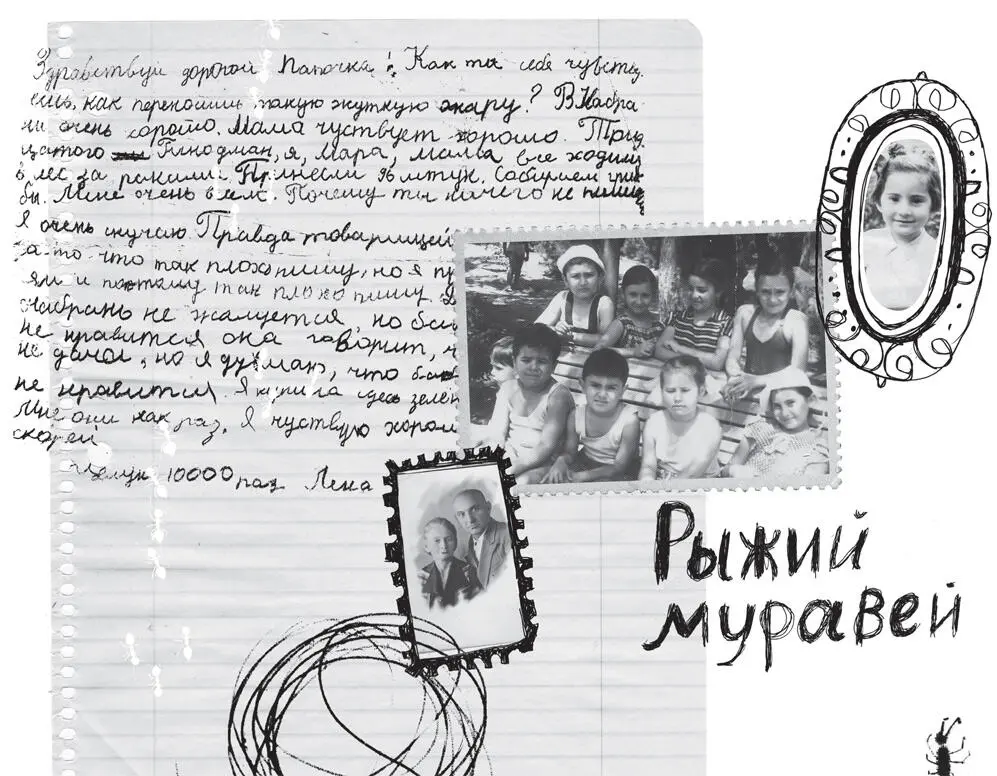 Здравствуй дорогой Папочка! Как ты себя чувству
ешь, как переносишь такую жуткую жару? В Насра
ни очень хорошо. Мама чуствует хорошо. Трид
цатого Гинодман, я, Мара, мама все ходили
в лес за раками Принесли 96 штук. Собираем гри
бы. Мне очень весел. Почему ты ничего не пишеш
Я очень скучаю. Правда товарищей
за то что так плохо пишу, но я пр
ям и поэтому так плохо пишу.
не жалуется, но
не нравится она говорит, ч
не дачах, но я думаю, что
не нравится. Я купила здесь зелён
Мне они как раз. Я чуствую хорош
скорей
10000 раз Лена
Рыжий
муравей